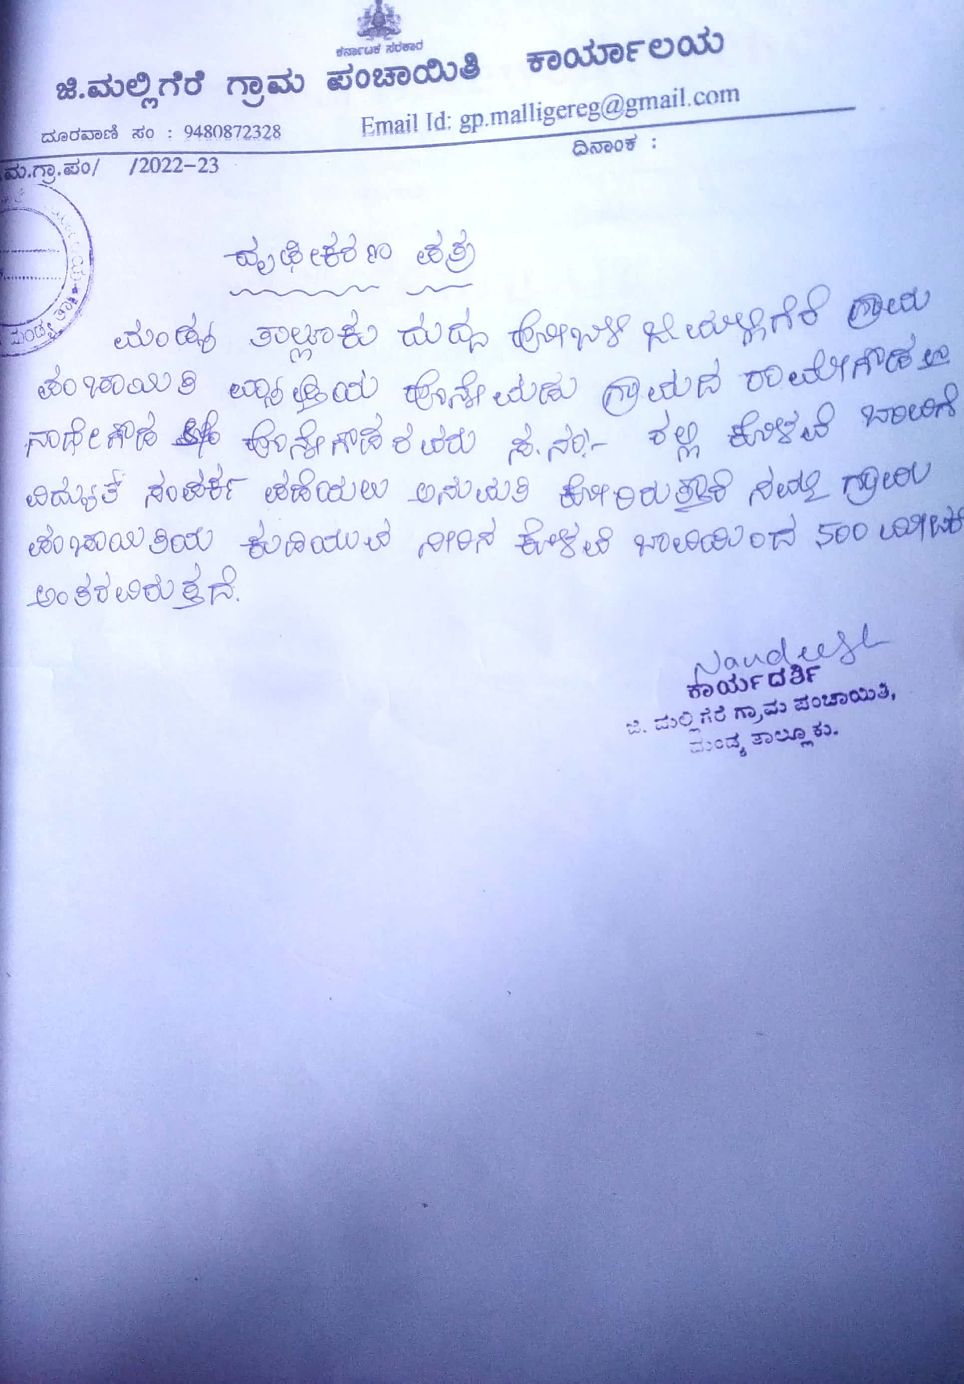 ಕರ್ನಾಟಕ ಸರಕಾರ
ಜಿ.ಮಲ್ಲಿಗೆರೆ ಗ್ರಾಮ ಪಂಚಾಯಿತಿ ಕಾರ್ಯಾಲಯ
ದೂರವಾಣಿ ಸಂ : 9480872328 Email Id: gp.malligereg@gmail.com
ಮ.ಗ್ರಾ.ಪಂ/ /2022-23 ದಿನಾಂಕ :
ದೃಢೀಕರಣ ಪತ್ರ
ಮಂಡ್ಯ ತಾಲ್ಲೂಕು ದುದ್ದ ಹೋಬಳಿ ಜಿ.ಮಲ್ಲಿಗೆರೆ ಗ್ರಾಮ
ಪಂಚಾಯಿತಿ ವ್ಯಾಪ್ತಿಯ ಹೊನ್ನೇಮಡು ಗ್ರಾಮದ ರಾಮೇಗೌಡ
ಸಾದೇಗೌಡ ಹೊನ್ನೇಗೌಡರವರು ಸ.ನಂ:- ರಲ್ಲಿ ಕೊಳವೆ ಬಾವಿಗೆ
ವಿದ್ಯುತ್ ಸಂಪರ್ಕ ಪಡೆಯಲು ಅನುಮತಿ ಕೋರಿರುತ್ತಾರೆ ನಮ್ಮ ಗ್ರಾಮ
ಪಂಚಾಯಿತಿಯ ಕುಡಿಯುವ ನೀರಿನ ಕೊಳವೆ ಬಾವಿಯಿಂದ 500 ಮೀಟರ್
ಅಂತರವಿರುತ್ತದೆ.
Nandeesh
ಕಾರ್ಯದರ್ಶಿ
ಜಿ. ಮಲ್ಲಿಗೆರೆ ಗ್ರಾಮ ಪಂಚಾಯಿತಿ,
ಮಂಡ್ಯ ತಾಲ್ಲೂಕು.
ಮಂಡ್ಯ ತಾ